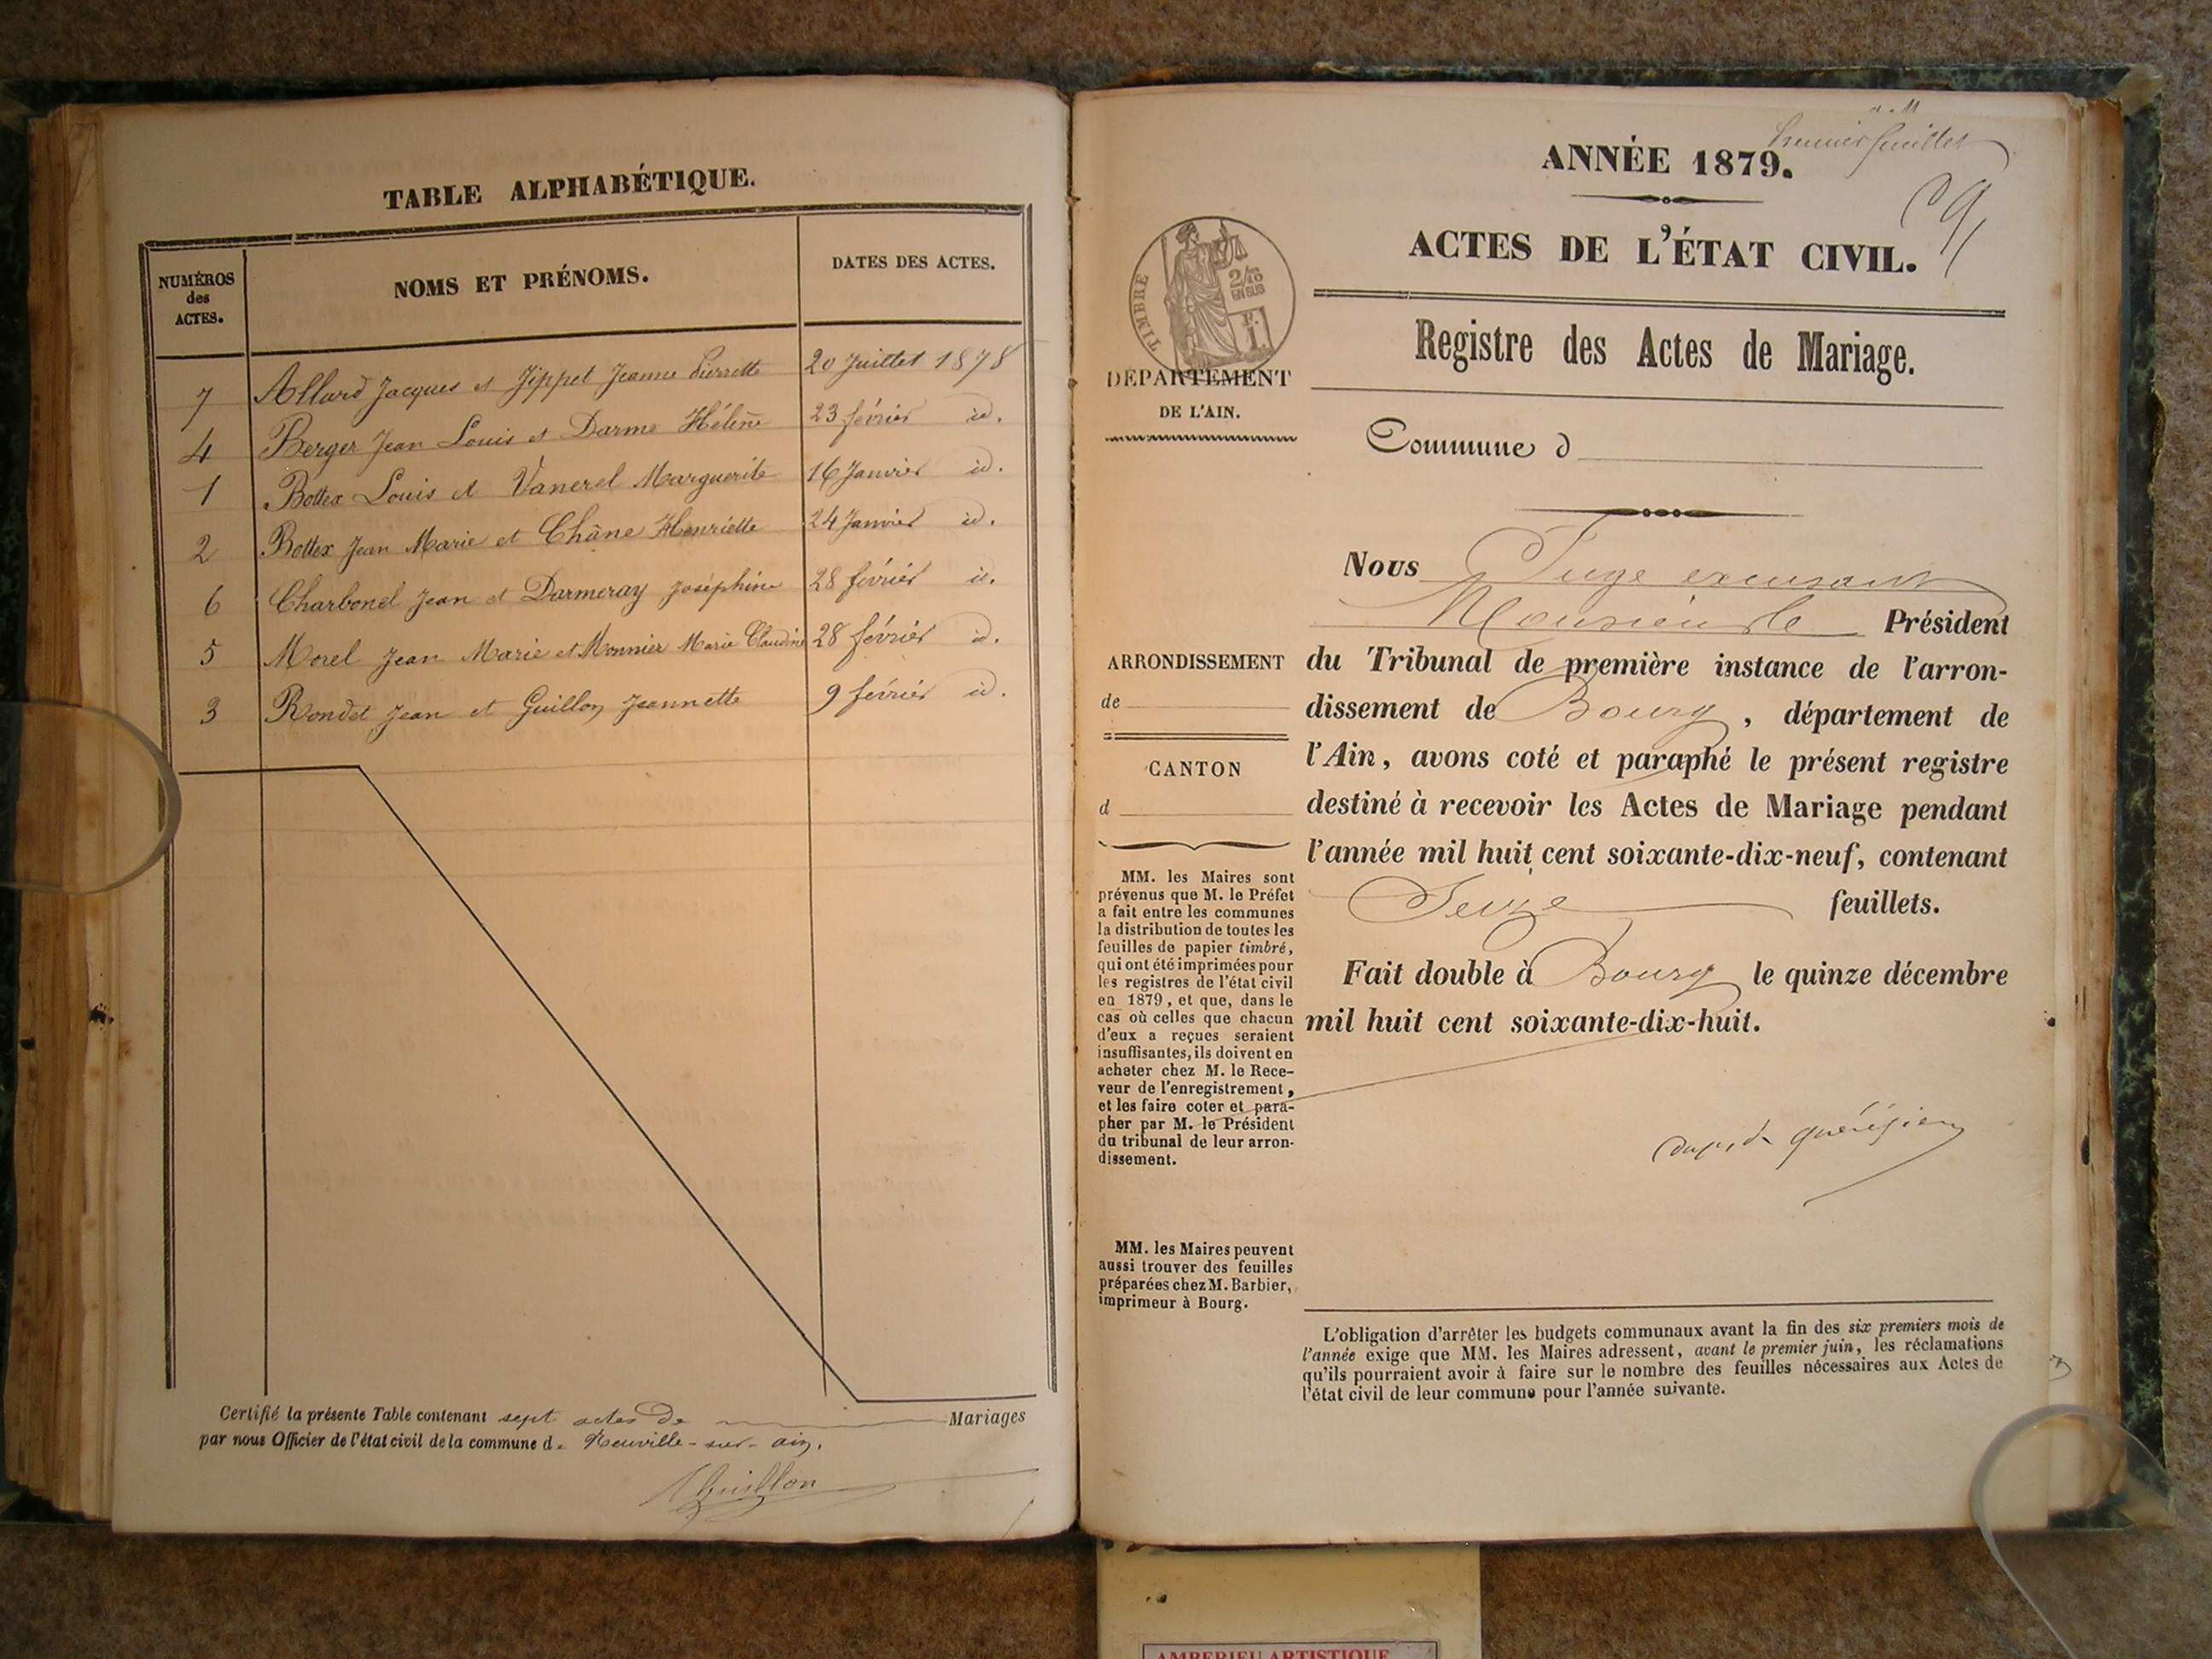 TABLE ALPHABÉTIQUE.
NUMÉROS
des
ACTES.
NOMS ET PRÉNOMS.
DATES DES ACTES.
7 Allard Jacques et Jippet Jeanne Pierrette 20 Juillet 1878
4 Berger Jean Louis et Darme Hélène 23 février id.
1 Bottex Louis et Vanerel Marguerite 16 Janvier id.
2 Bottex Jean Marie et Chêne Henriette 24 Janvier id.
6 Charbonel Jean et Darmeray Joséphine 28 février id.
5 Morel Jean Marie et Monnier Marie Claudine 28 février id.
3 Rondet Jean et Guillon Jeannette 9 février id.
Certifié la présente Table contenant sept actes de Mariages
par nous Officier de l'état civil de la commune de Neuville-sur-ain.
Premier feuillet
ANNÉE 1879.
ACTES DE L'ÉTAT CIVIL.
Registre des Actes de Mariage.
TIMBRE
2/10
EN SUS
DÉPARTEMENT
DE L'AIN.
Commune d
Nous Juge excusant
Monsieur le Président
du Tribunal de première instance de l'arron-
dissement de Bourg, département de
l'Ain, avons coté et paraphé le présent registre
destiné à recevoir les Actes de Mariage pendant
l'année mil huit cent soixante-dix-neuf, contenant
Seize feuillets.
Fait double à Bourg le quinze décembre
mil huit cent soixante-dix-huit.
ARRONDISSEMENT
de
CANTON
d
MM. les Maires sont
prévenus que M. le Préfet
a fait entre les communes
la distribution de toutes les
feuilles de papier timbré,
qui ont été imprimées pour
les registres de l'état civil
en 1879, et que, dans le
cas où celles que chacun
d'eux a reçues seraient
insuffisantes, ils doivent en
acheter chez M. le Rece-
veur de l'enregistrement,
et les faire coter et para-
pher par M. le Président
du tribunal de leur arron-
dissement.
MM. les Maires peuvent
aussi trouver des feuilles
préparées chez M. Barbier,
imprimeur à Bourg.
L'obligation d'arrêter les budgets communaux avant la fin des six premiers mois de
l'année exige que MM. les Maires adressent, avant le premier juin, les réclamations
qu'ils pourraient avoir à faire sur le nombre des feuilles nécessaires aux Actes de
l'état civil de leur commune pour l'année suivante.
AMBERIEU ARTISTIQUE